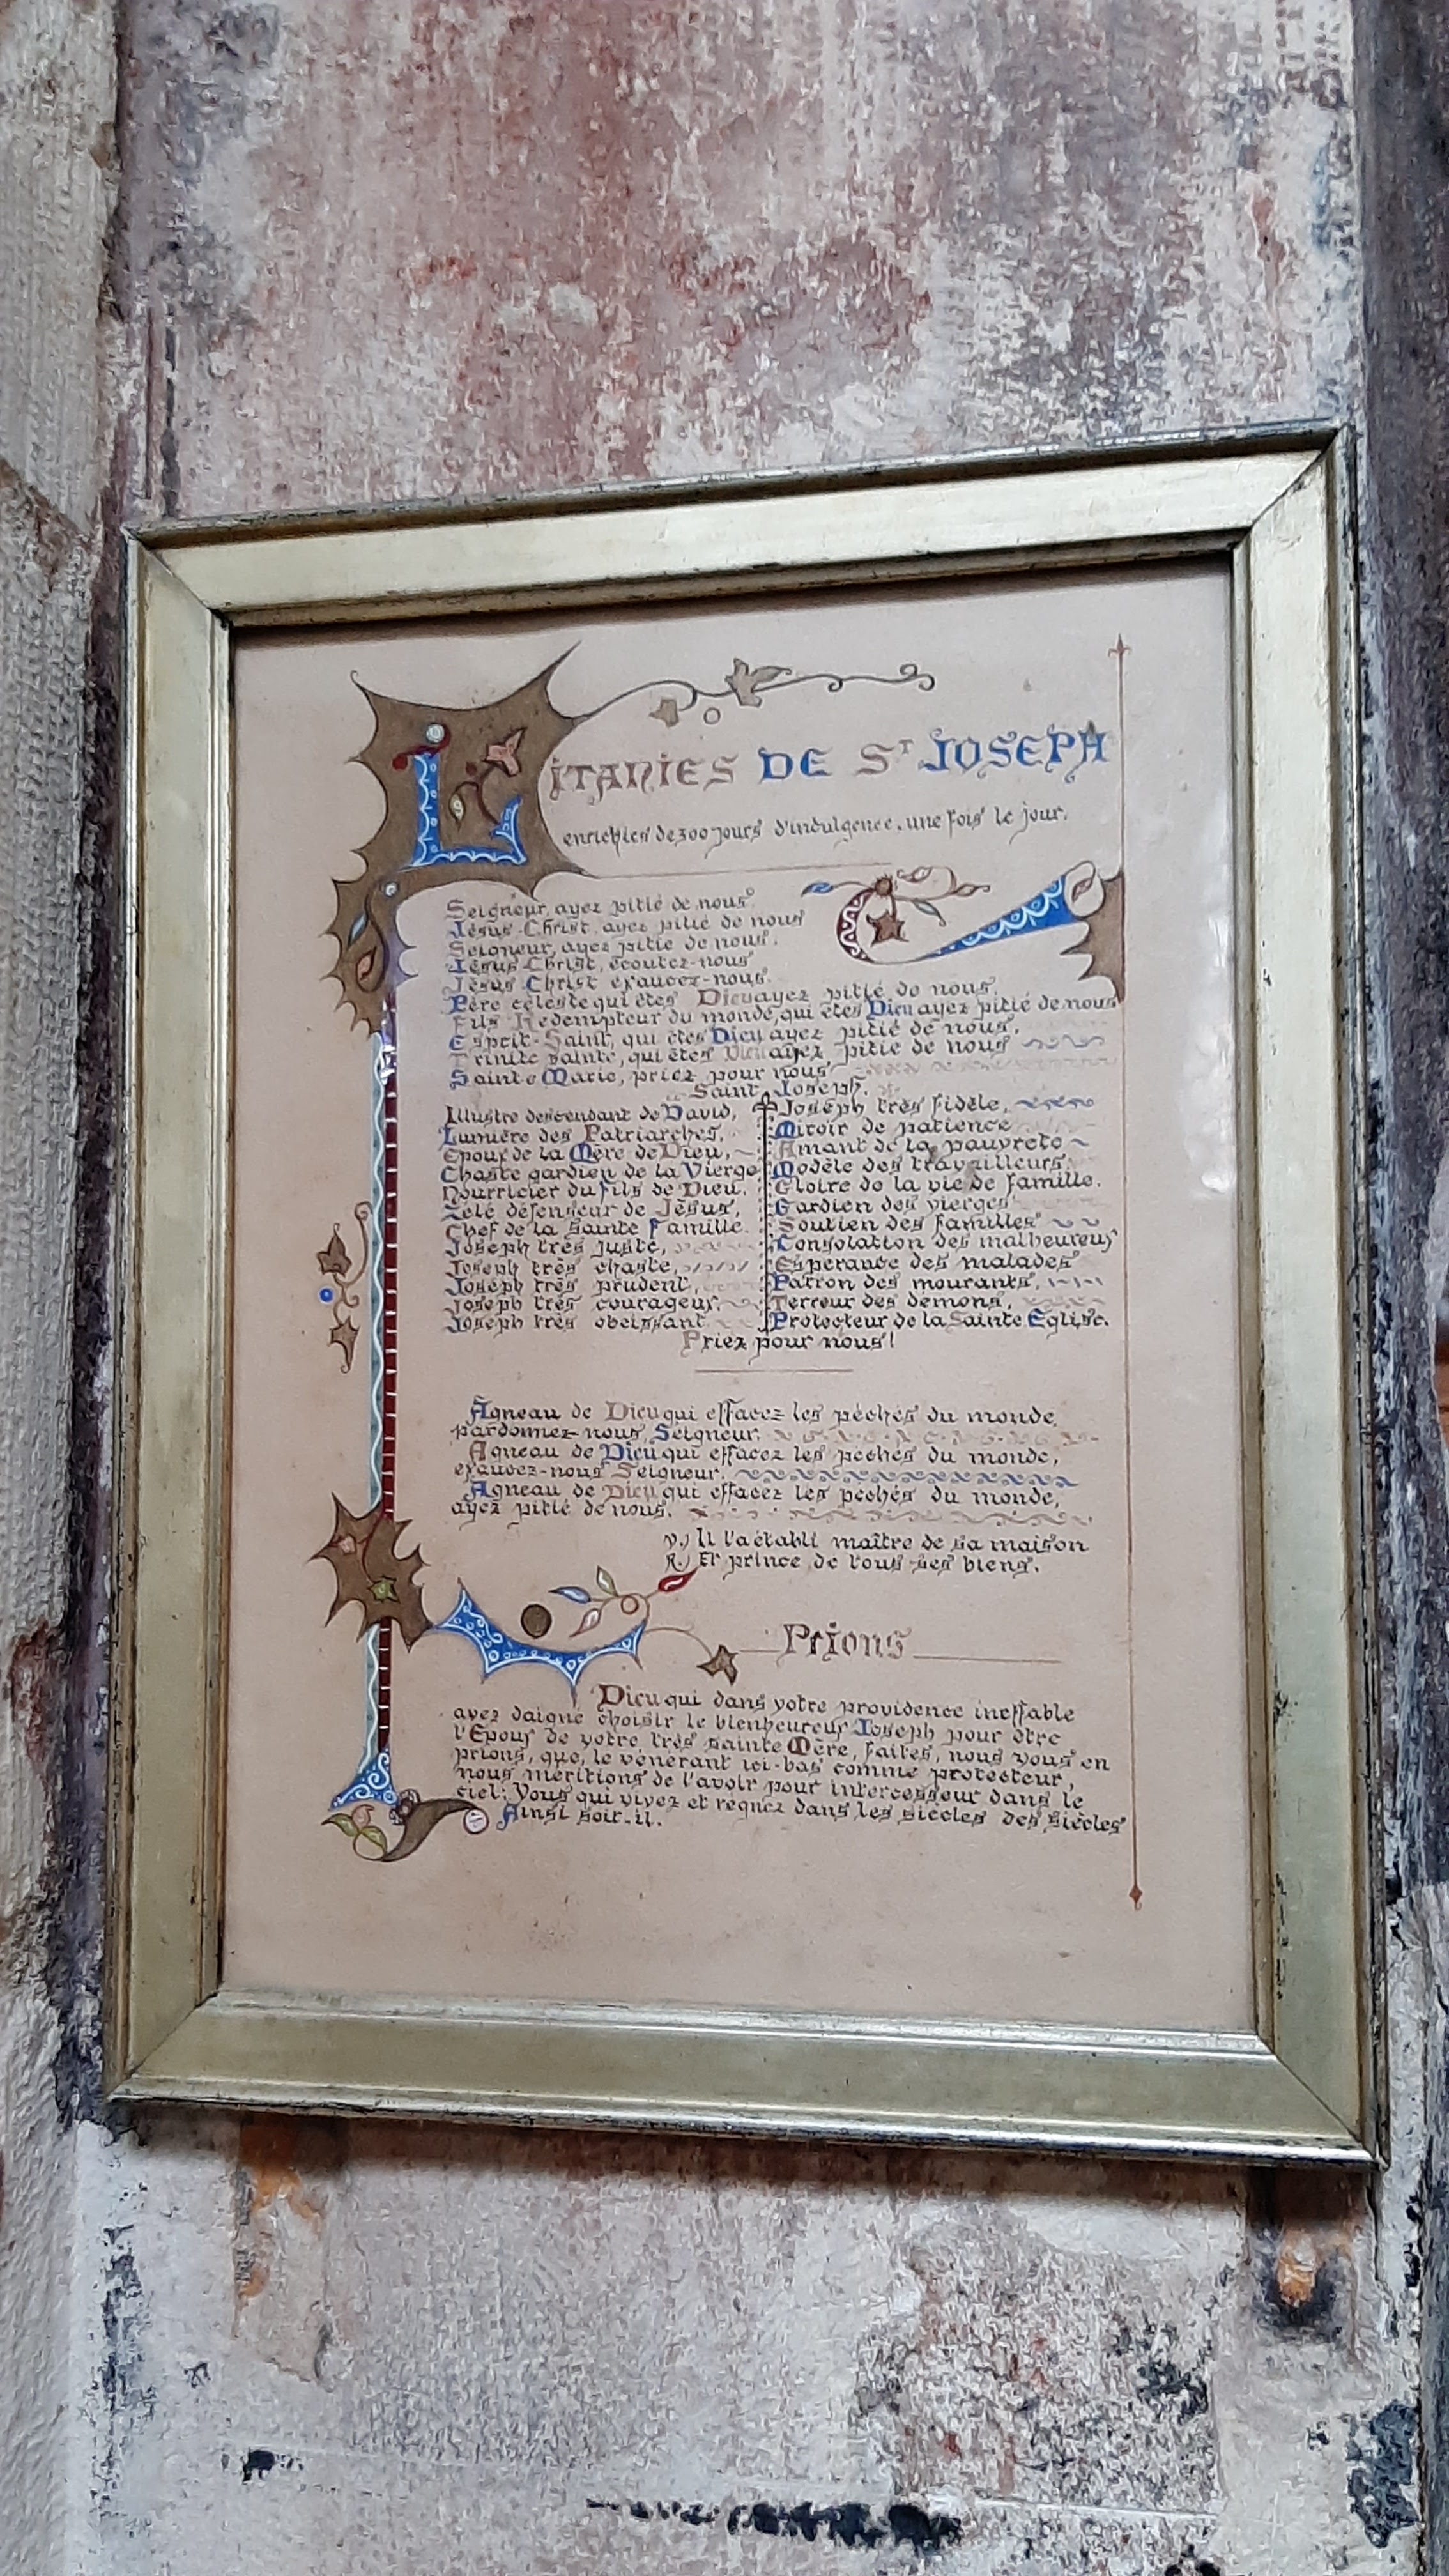 LITANIES DE ST JOSEPH
enrichies de 300 jours d'indulgence. une fois le jour.
Seigneur, ayez pitié de nous.
Jésus-Christ, ayez pitié de nous
Seigneur, ayez pitié de nous.
Jésus Christ, écoutez-nous
Jésus Christ exaucez-nous.
Père céleste qui êtes Dieu ayez pitié de nous.
Fils Rédempteur du monde, qui êtes Dieu ayez pitié de nous
Esprit-Saint, qui êtes Dieu ayez pitié de nous.
Trinité Sainte, qui êtes Dieu ayez pitié de nous
Sainte Marie, priez pour nous
Saint Joseph.
Illustre descendant de David,
Lumière des Patriarches,
Epoux de la Mère de Dieu,
Chaste gardien de la Vierge
Nourricier du fils de Dieu.
Zélé défenseur de Jésus,
Chef de la Sainte Famille.
Joseph très juste,
Joseph très chaste,
Joseph très prudent,
Joseph très courageux,
Joseph très obeissant
Joseph très fidèle,
Miroir de patience
Amant de la pauvreté
Modèle des travailleurs
Gloire de la vie de famille.
Gardien des vierges
Soutien des familles
Consolation des malheureux
Esperance des malades
Patron des mourants,
Terreur des démons,
Protecteur de la Sainte Eglise.
Priez pour nous!
Agneau de Dieu qui effacez les péchés du monde,
pardonnez-nous, Seigneur.
Agneau de Dieu qui effacez les péchés du monde,
exaucez-nous Seigneur.
Agneau de Dieu qui effacez les péchés du monde,
ayez pitié de nous.
V.) Il l'a établi maître de sa maison
R.) Et prince de tous ses biens.
Prions
Dieu qui dans votre providence ineffable
avez daigné choisir le bienheureux Joseph pour être
l'Epoux de votre très sainte Mère, faites, nous vous en
prions, que, le vénérant ici-bas comme protecteur,
nous méritions de l'avoir pour intercesseur dans le
ciel: Vous qui vivez et régnez dans les siècles des siècles
Ainsi soit-il.